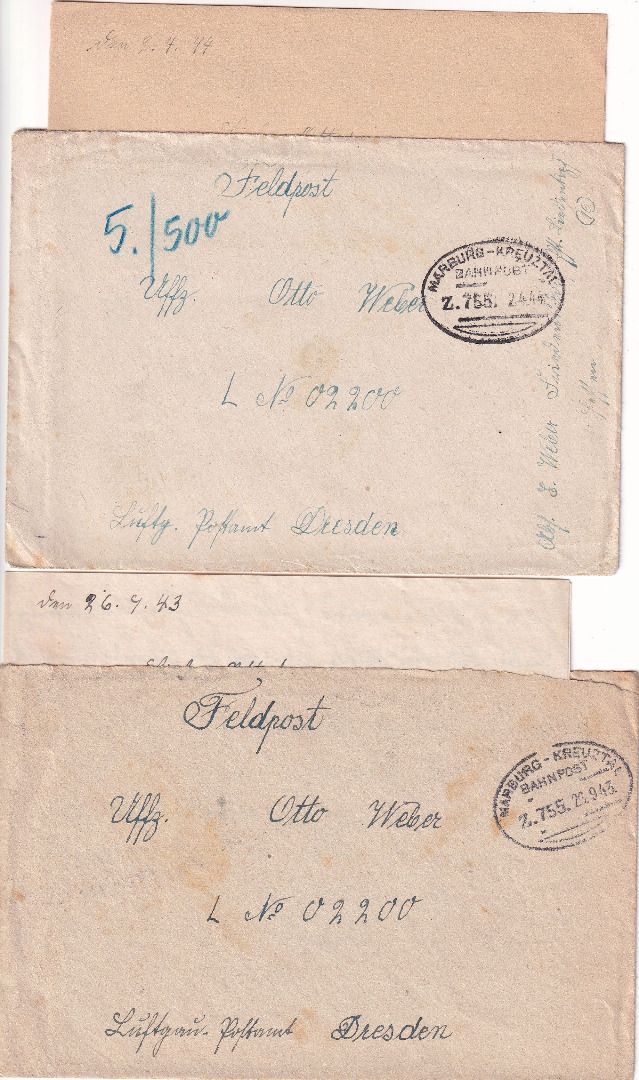 den 2. 4. 44
Feldpost
5./500
MARBURG - KREUZTAL
BAHNPOST
Z. 755. 2.4.44
Uffz. Otto Weber
L No 02200
Luftg. Postamt Dresden
Abs. E. Weber
Hessen
den 26. 9. 43
Feldpost
MARBURG - KREUZTAL
BAHNPOST
Z. 755. 2 .9.43.
Uffz. Otto Weber
L No 02200
Luftgau-Postamt Dresden